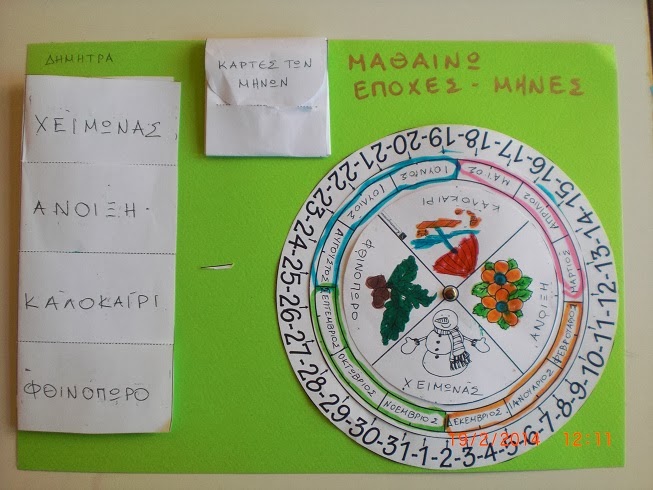 ΔΗΜΗΤΡΑ
ΚΑΡΤΕΣ ΤΩΝ
ΜΗΝΩΝ
ΜΑΘΑΙΝΩ
ΕΠΟΧΕΣ - ΜΗΝΕΣ
ΧΕΙΜΩΝΑΣ
ΑΝΟΙΞΗ
ΚΑΛΟΚΑΙΡΙ
ΦΘΙΝΟΠΩΡΟ
1-2-3-4-5-6-7-8-9-10-11-12-13-14-15-16-17-18-19-20-21-22-23-24-25-26-27-28-29-30-31
ΙΑΝΟΥΑΡΙΟΣ
ΦΕΒΡΟΥΑΡΙΟΣ
ΜΑΡΤΙΟΣ
ΑΠΡΙΛΙΟΣ
ΜΑΙΟΣ
ΙΟΥΝΙΟΣ
ΙΟΥΛΙΟΣ
ΑΥΓΟΥΣΤΟΣ
ΣΕΠΤΕΜΒΡΙΟΣ
ΟΚΤΩΒΡΙΟΣ
ΝΟΕΜΒΡΙΟΣ
ΔΕΚΕΜΒΡΙΟΣ
ΚΑΛΟΚΑΙΡΙ
ΑΝΟΙΞΗ
ΧΕΙΜΩΝΑΣ
ΦΘΙΝΟΠΩΡΟ
19/2/2014 12:11